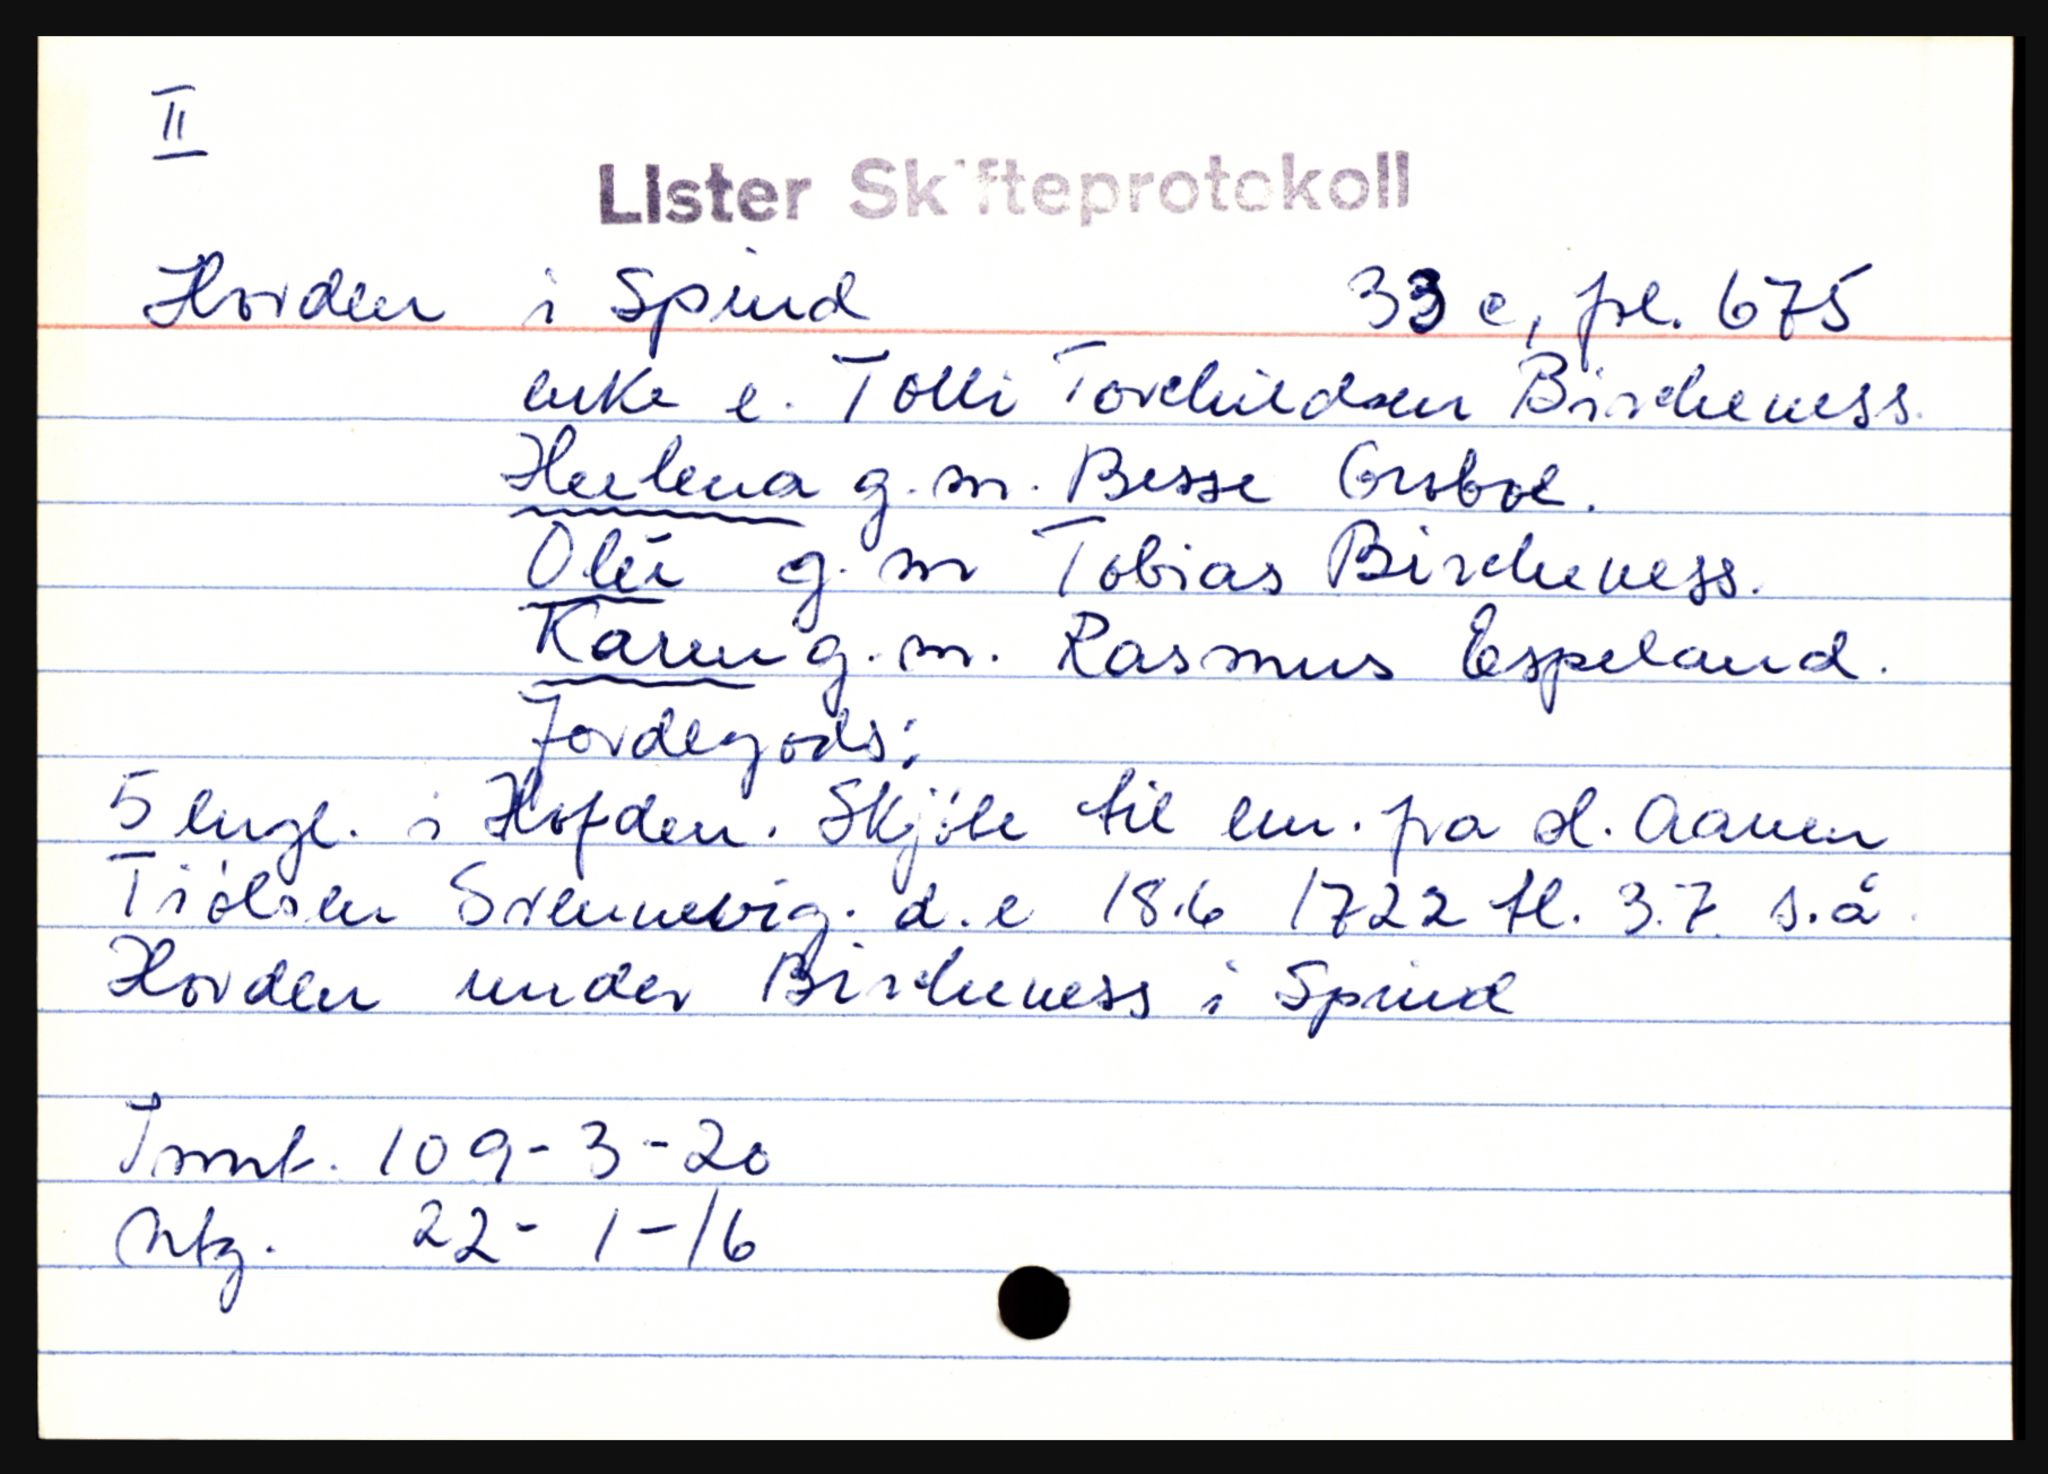 II
Lister Skifteprotokoll
Hovden i Spind 33 c, fol. 675
enke e. Tolli Torchildsen Bircheness.
Heelena g.m. Besse Groboe.
Olèr g.m Tobias Bircheness.
Karen g.m. Rasmus Espeland.
Jordegods;
5 engl. i Hofden. Skjöte til em. fra sl. Aanen
Tiölsen Svennevig. d.e 18.6 1722 tl. 3.7. s.å.
Hovden under Bircheness i Spind
Innt. 109-3-20
Utg. 22-1-16